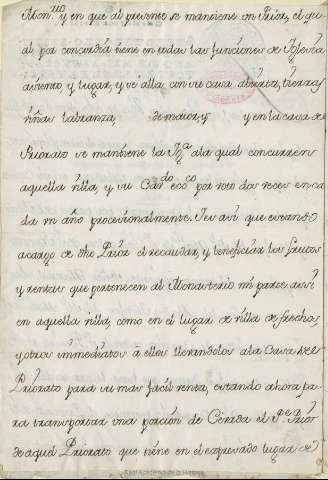 Mon.rio y en que al presente se mantiene un Prior, el qu
al por concordia tiene en todas las funciones de Iglesia
asiento, y lugar, y se alla con su casa abierta, tierras,
viñas labranza, de maior, y y en la casa de
Priorato se mantiene la Jg.a ala qual concurren
aquella villa, y su Cav.do ecco por voto dos veces en ca
da un año procesionalmente. Ies asi que estando
acargo de dho Prior el recaudar, y beneficiar los frutos
y rentas que pertenecen al Monasterio mi parte assi
en aquella villa, como en el lugar de villa de frechos,
y otros immediatos à ellos llevandolos ala Casa del
Priorato para su mas facil venta, estando ahora pa
ra transportar una porcion de Cevada el P.e Prior
de aquel Priorato que tiene en el expresado lugar de
Real Academia de la Historia